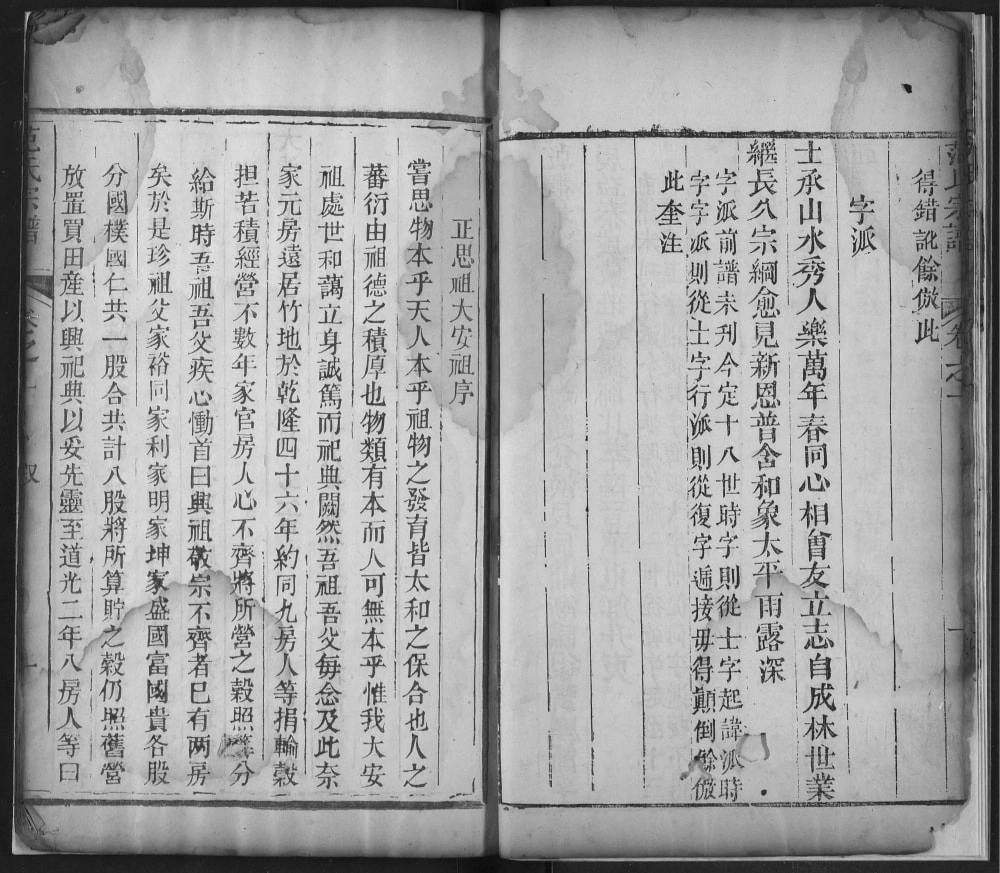 范氏宗譜 卷之一
得錯訛餘倣此
字派
士承山水秀人樂萬年春同心相會友立志自成林世業
繼長久宗綱愈見新恩普舍和象太平雨露深
字派前譜未刋今定十八世時字則從士字起諱派時
字字派則從士字行派則從復字遞接毋得顛倒餘倣
此奎注
正思祖大安祖序
嘗思物本乎天人本乎祖物之發育皆太和之保合也人之
蕃衍由祖德之積厚也物類有本而人可無本乎惟我大安
祖處世和藹立身誠篤而祀典闕然吾祖吾父每念及此奈
家元房遠居竹地於乾隆四十六年約同九房人等捐輸穀
担苦積經營不數年家官房人心不齊將所營之穀照
分
給斯時吾祖吾父疾心慟首曰興祖敬宗不齊者已有两房
矣於是珍祖父家裕同家利家明家坤家盛國富國貴各股
分國樸國仁共一股合共計八股將所算貯之穀仍照舊營
放置買田産以興祀典以妥先靈至道光二年八房人等曰
范氏宗譜 卷之一